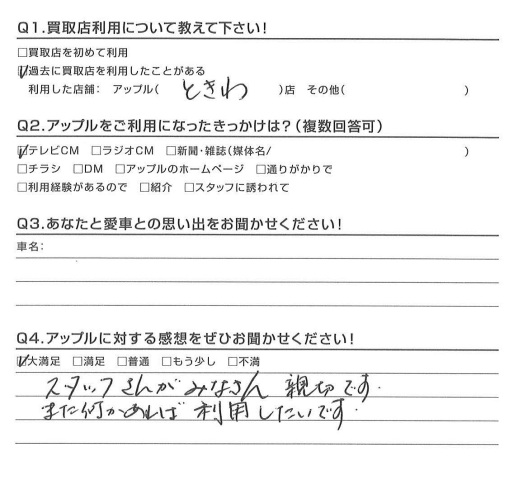 Q1.買取店利用について教えて下さい!
□買取店を初めて利用
☑過去に買取店を利用したことがある
利用した店舗: アップル( ときわ )店 その他( )
Q2.アップルをご利用になったきっかけは?(複数回答可)
☑テレビCM □ラジオCM □新聞・雑誌(媒体名/ )
□チラシ □DM □アップルのホームページ □通りがかりで
□利用経験があるので □紹介 □スタッフに誘われて
Q3.あなたと愛車との思い出をお聞かせください!
車名:
Q4.アップルに対する感想をぜひお聞かせください!
☑大満足 □満足 □普通 □もう少し □不満
スタッフさんがみなさん 親切です.
また何かあれば 利用したいです.